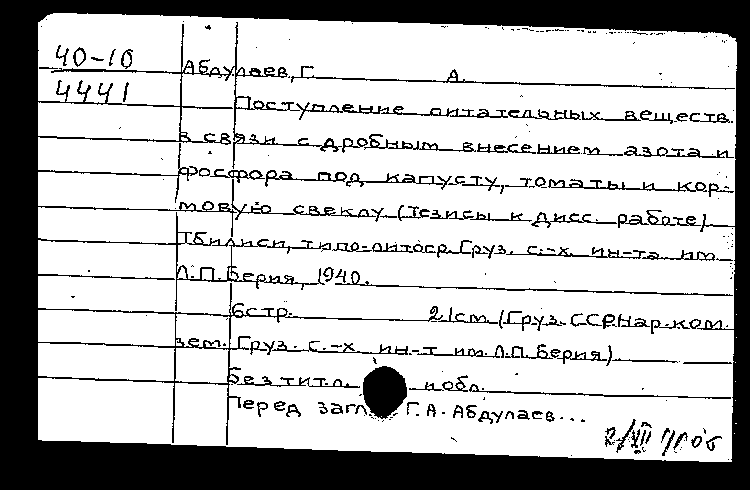 40-10
4441
Абдулаев, Г. А.
Поступление питательных веществ
в связи с дробным внесением азота и
фосфора под капусту, томаты и кор-
мовую свеклу (Тезисы к дисс. работе)
Тбилиси, типо-литогр. Груз. с.-х. ин-та им.
Л.П. Берия, 1940.
6 стр. 21 см. (Груз. ССР Нар. ком.
зем. Груз. с.-х ин-т им. Л.П. Берия)
Без тит. л. и обл.
Перед загл. Г. А. Абдулаев...